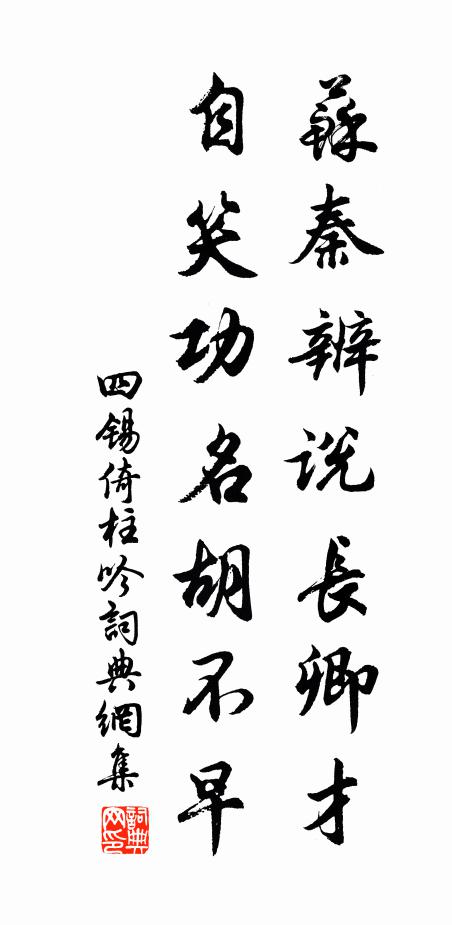 蘇秦辨説長卿才
自笑功名胡不早
四锡倚柱吟詞典網集
詞典網印